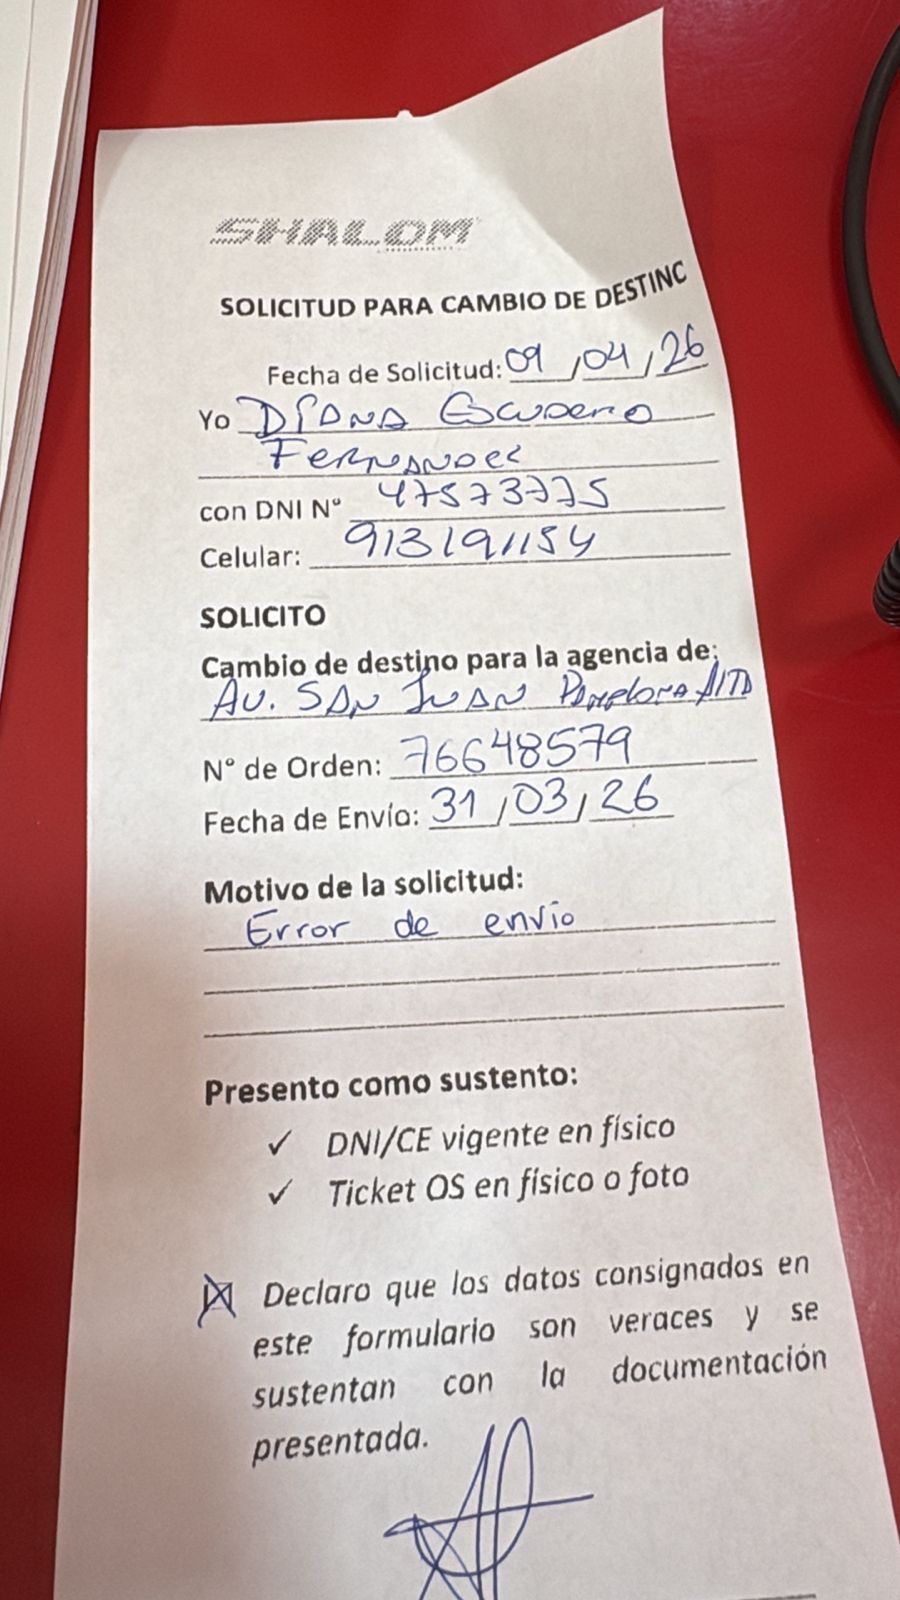 SHALOM
SOLICITUD PARA CAMBIO DE DESTINO
Fecha de Solicitud: 09 / 04 / 26
Yo Diana Escudero
Fernandez
con DNI N° 47573775
Celular: 913191154
SOLICITO
Cambio de destino para la agencia de:
Av. San Juan Pamplona Alta
N° de Orden: 76648579
Fecha de Envío: 31 / 03 / 26
Motivo de la solicitud:
Error de envío
Presento como sustento:
✓ DNI/CE vigente en físico
✓ Ticket OS en físico o foto
Declaro que los datos consignados en
este formulario son veraces y se
sustentan con la documentación
presentada.